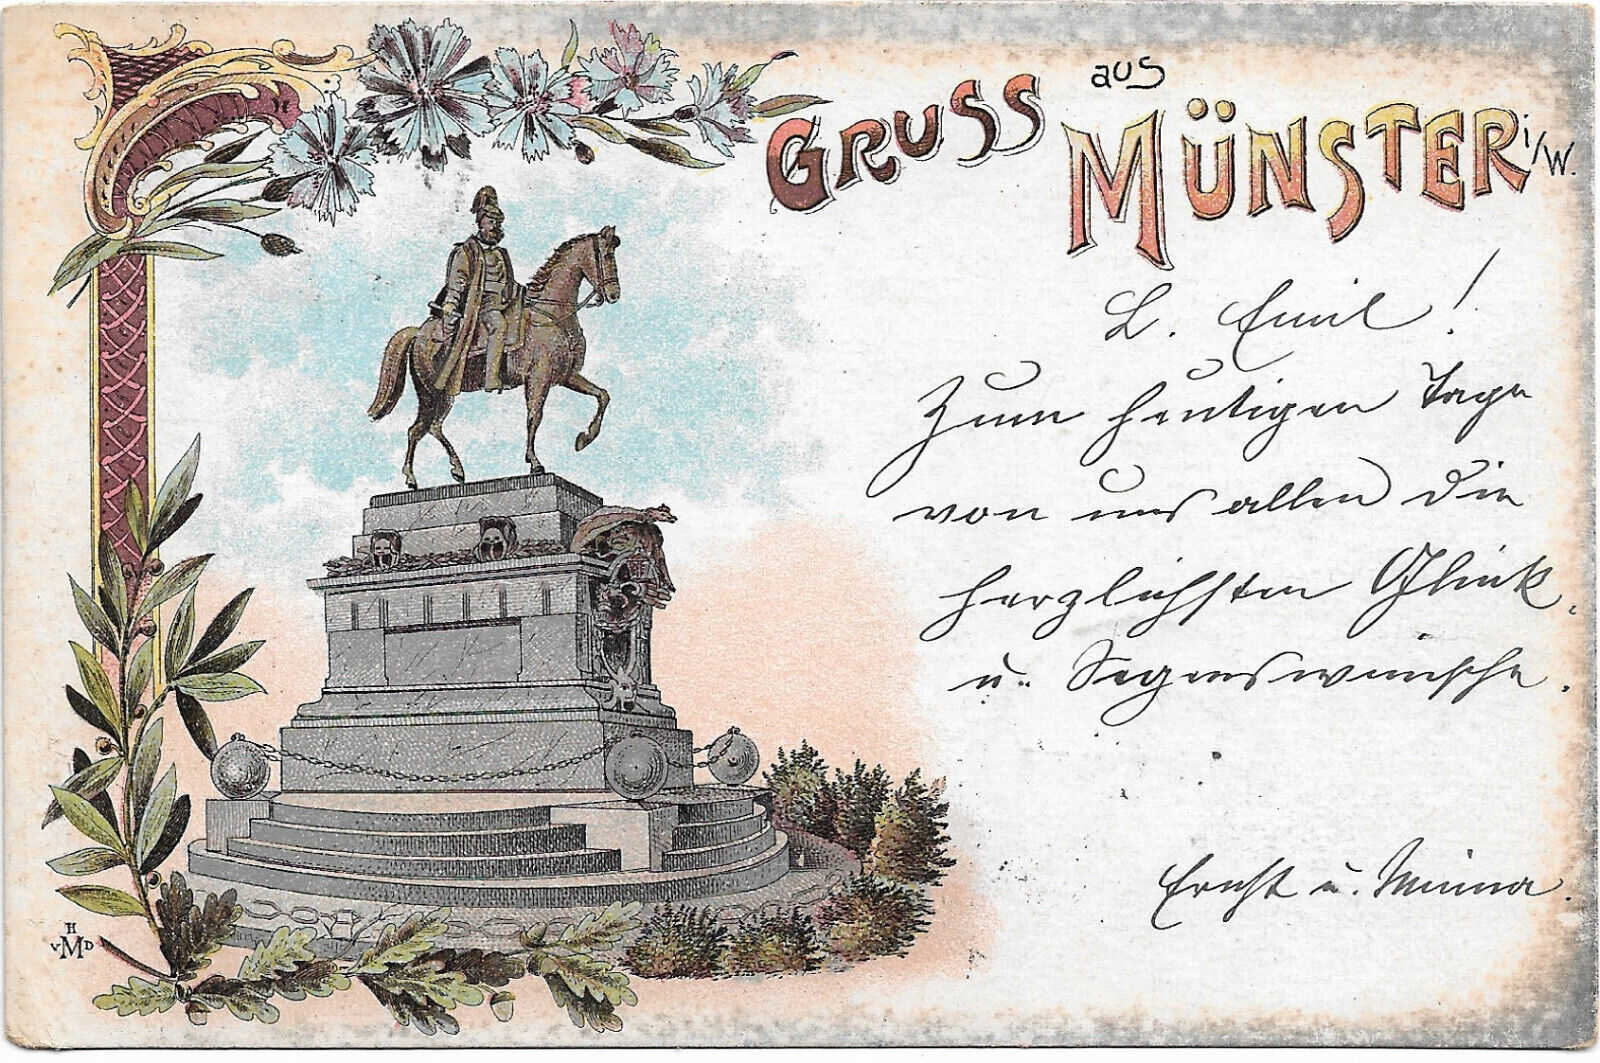 GRUSS aus MÜNSTER i/W.
L. Emil!
Zum heutigen Tage
von uns allen die
herzlichsten Glück-
u. Segenswünsche.
Ernst u. Minna.
H
vMD